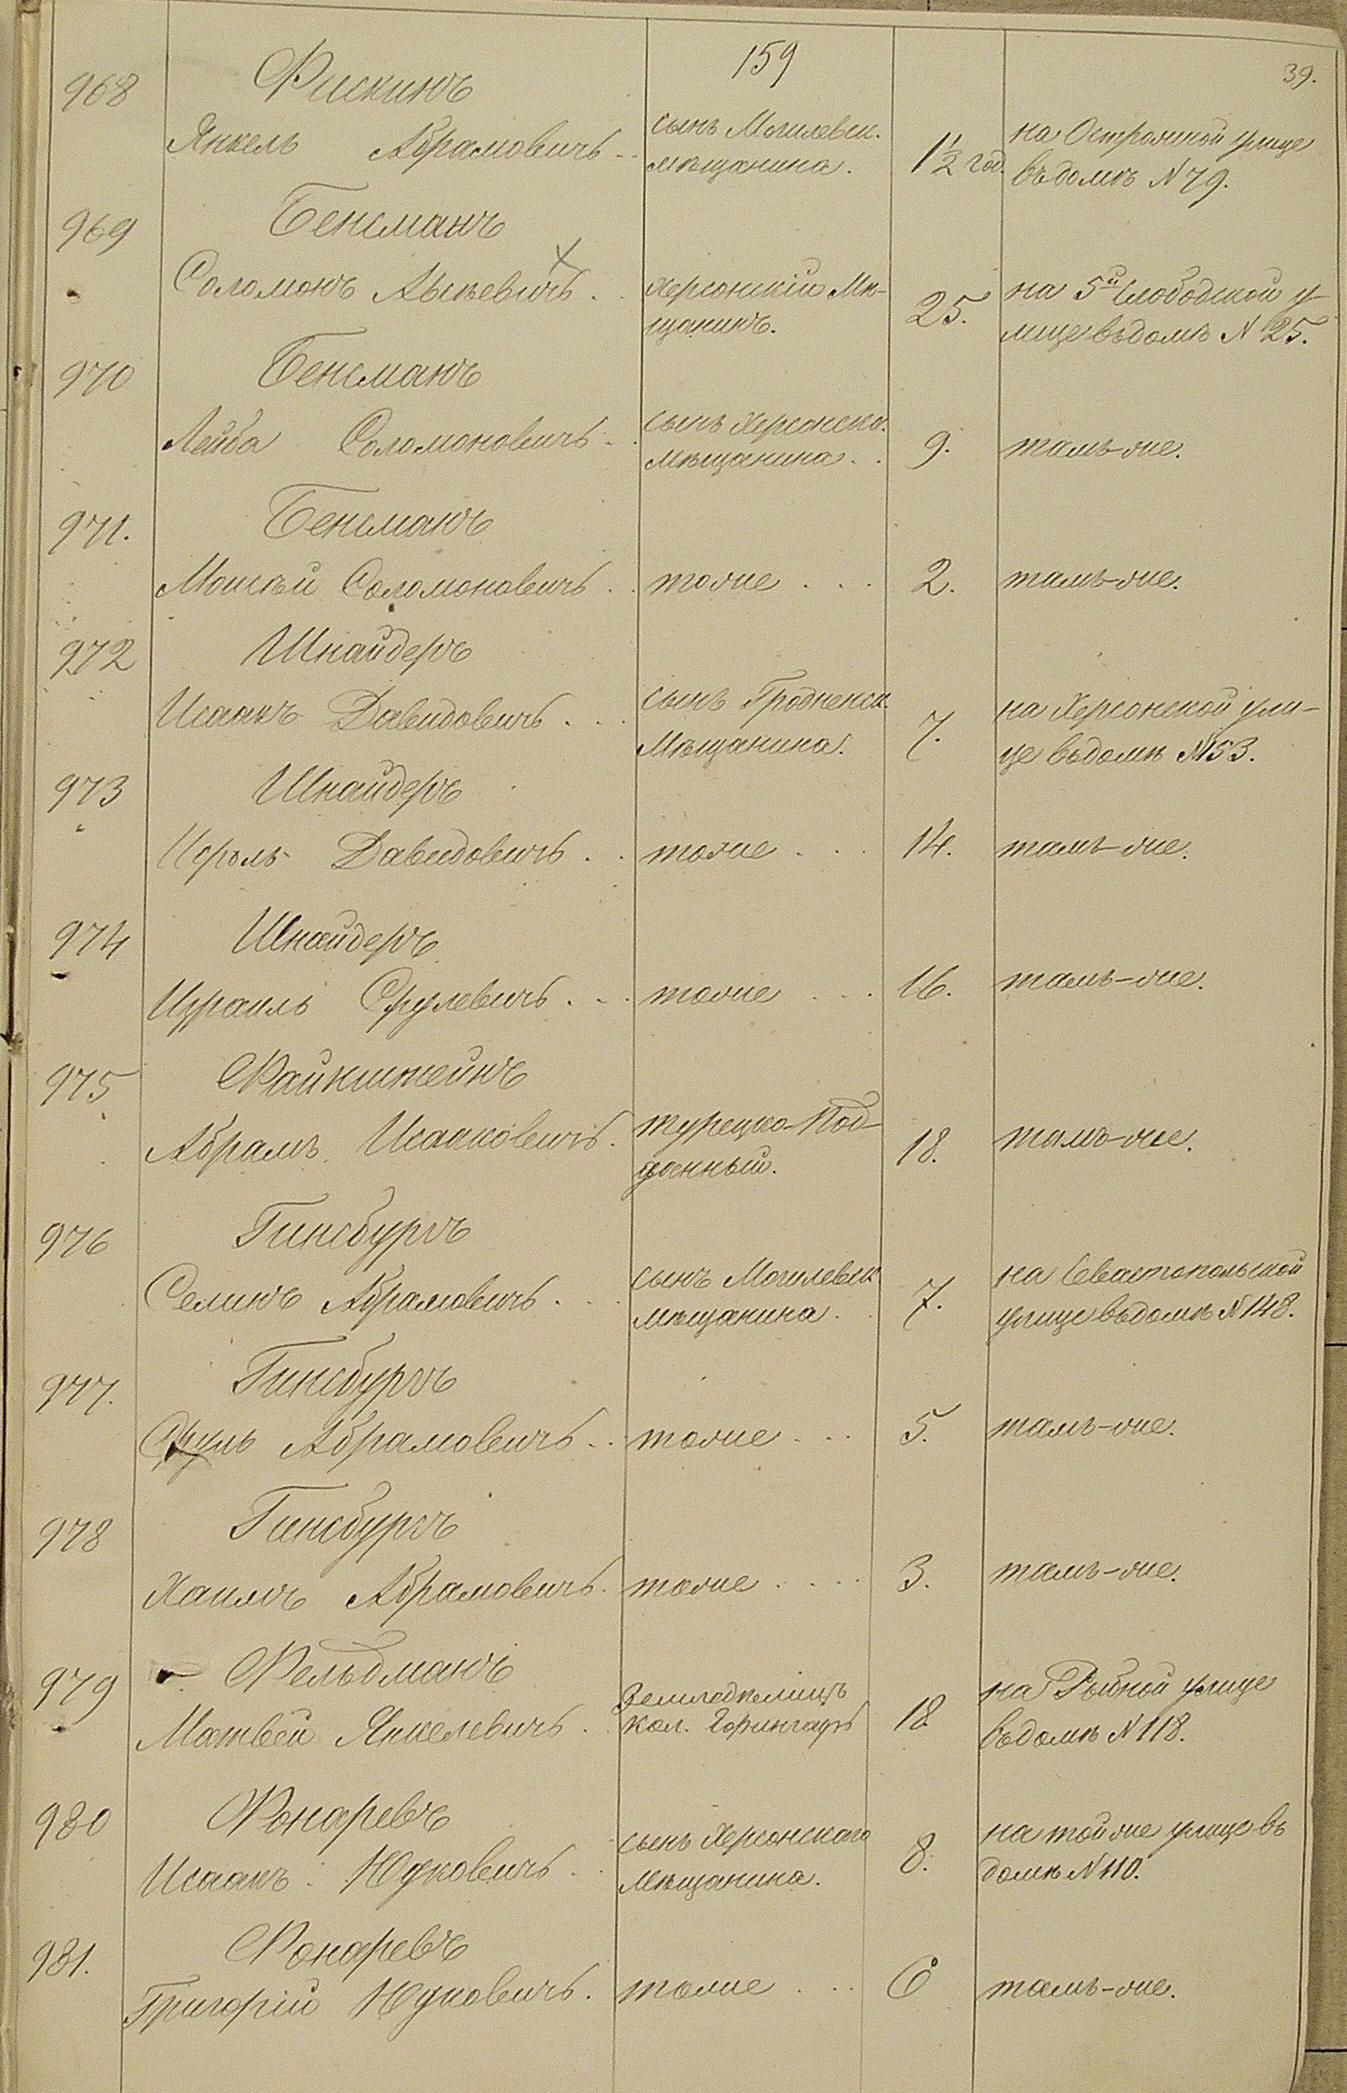 159
39.
968 Фискинъ
Янкель Абрамовичъ сынъ Могилевск. 1 1/2 год. на Острожной улице
мѣщанина. въ домѣ № 79.
969 Бенсманъ
Соломонъ Херсонскій Мѣ- 25. на 5й Слободской у-
щанинъ. лице въ домѣ № 25.
970 Бенсманъ
Лейба Соломоновичъ сынъ Херсонско. 9. тамъ-же.
мѣщанина.
971. Бенсманъ
Моисѣй Соломоновичъ тоже 2. тамъ-же.
972 Шнайдеръ
Исаакъ Давидовичъ сынъ Гродненск. 7. на Херсонской ули-
Мѣщанина. це въ домѣ № 53.
973 Шнайдеръ
Исроль Давидовичъ тоже 14. тамъ-же.
974 Шнайдеръ
Израиль Срулевичъ тоже 16. тамъ-же.
975 Файнштейнъ
Абрамъ Исааковичъ турецко-Под- 18. тамъ-же.
данный.
976 Гинсбургъ
Селикъ Абрамовичъ сынъ Могилевск. 7. на Севастопольской
мѣщанина улице въ домѣ № 148.
977. Гинсбургъ
Сруль Абрамовичъ тоже 5. тамъ-же.
978 Гинсбургъ
Хаимъ Абрамовичъ тоже 3. тамъ-же.
979 Фельдманъ
Матвей Янкелевичъ Земледѣлецъ 18 на Рыбной улице
кол. въ домѣ № 118.
980 Фонаревъ
Исаакъ Юдковичъ сынъ Херсонскаго 8. на той же улице въ
мѣщанина. домѣ № 110.
981. Фонаревъ
Григорій Юдковичъ. тоже 6 тамъ-же.